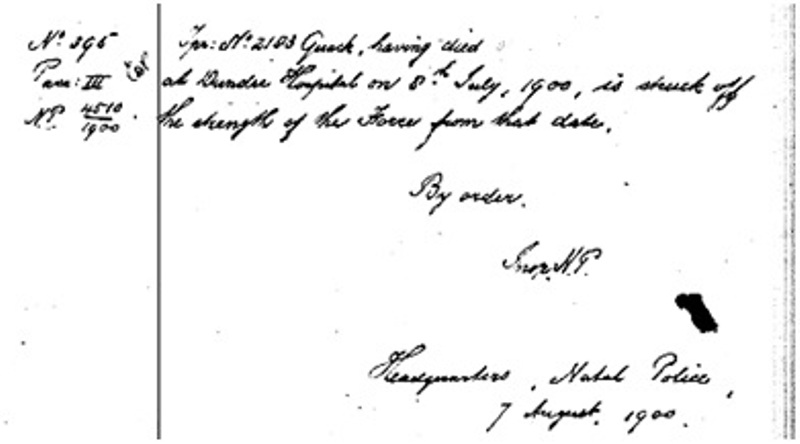 No 395
Para: III
N.P. 4510/1900.
Tpr: No 2183 Quack, having died
at Dundee Hospital on 8th July, 1900, is struck off
the strength of the Force from that date.
By order.
Insp. N.P.
Headquarters, Natal Police,
7 August, 1900.